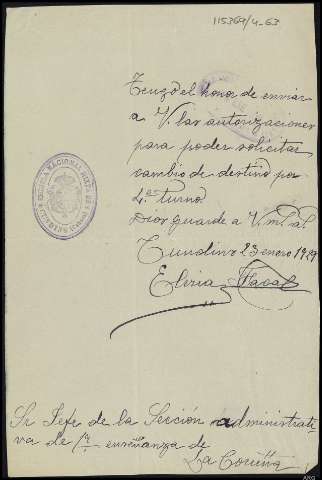 115369/4-63
Tengo el honor de enviar
a V. las autorizaciones
para poder solicitar
cambio de destino por
4º turno.
Dios guarde a V. m. a.
23 enero 19
Elisa
Sr Jefe de la Sección administrati-
va de 1ª enseñanza de
La Coruña